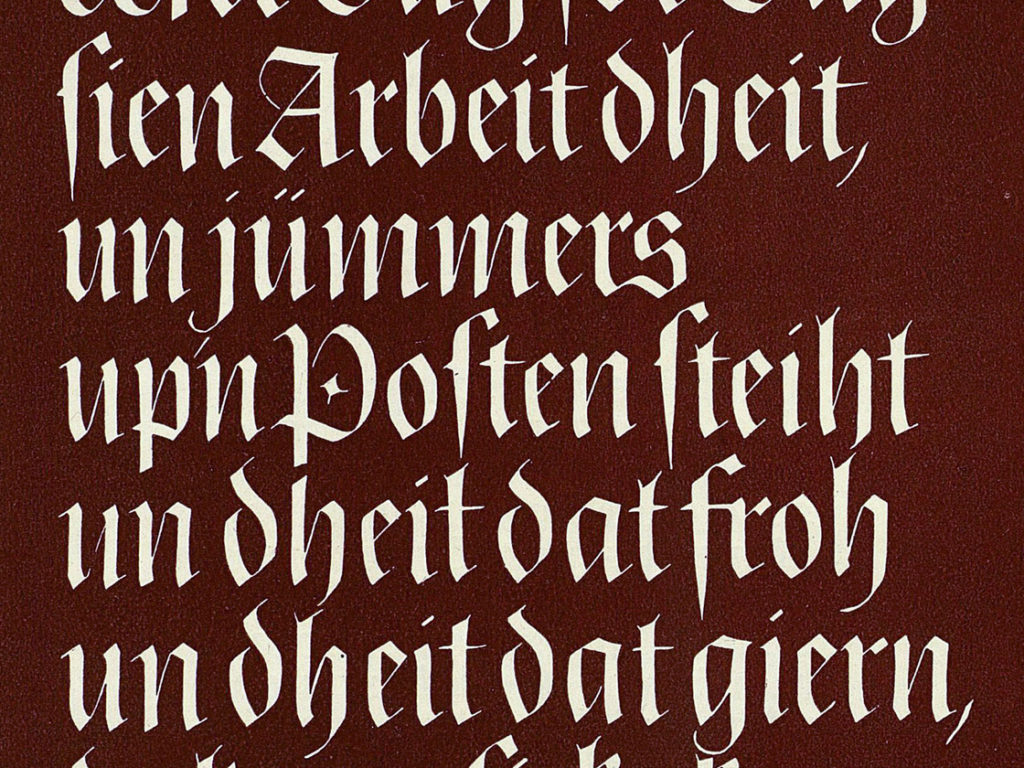 sien Arbeit dheit,
un jümmers
up'n Posten steiht
un dheit dat froh
un dheit dat giern,